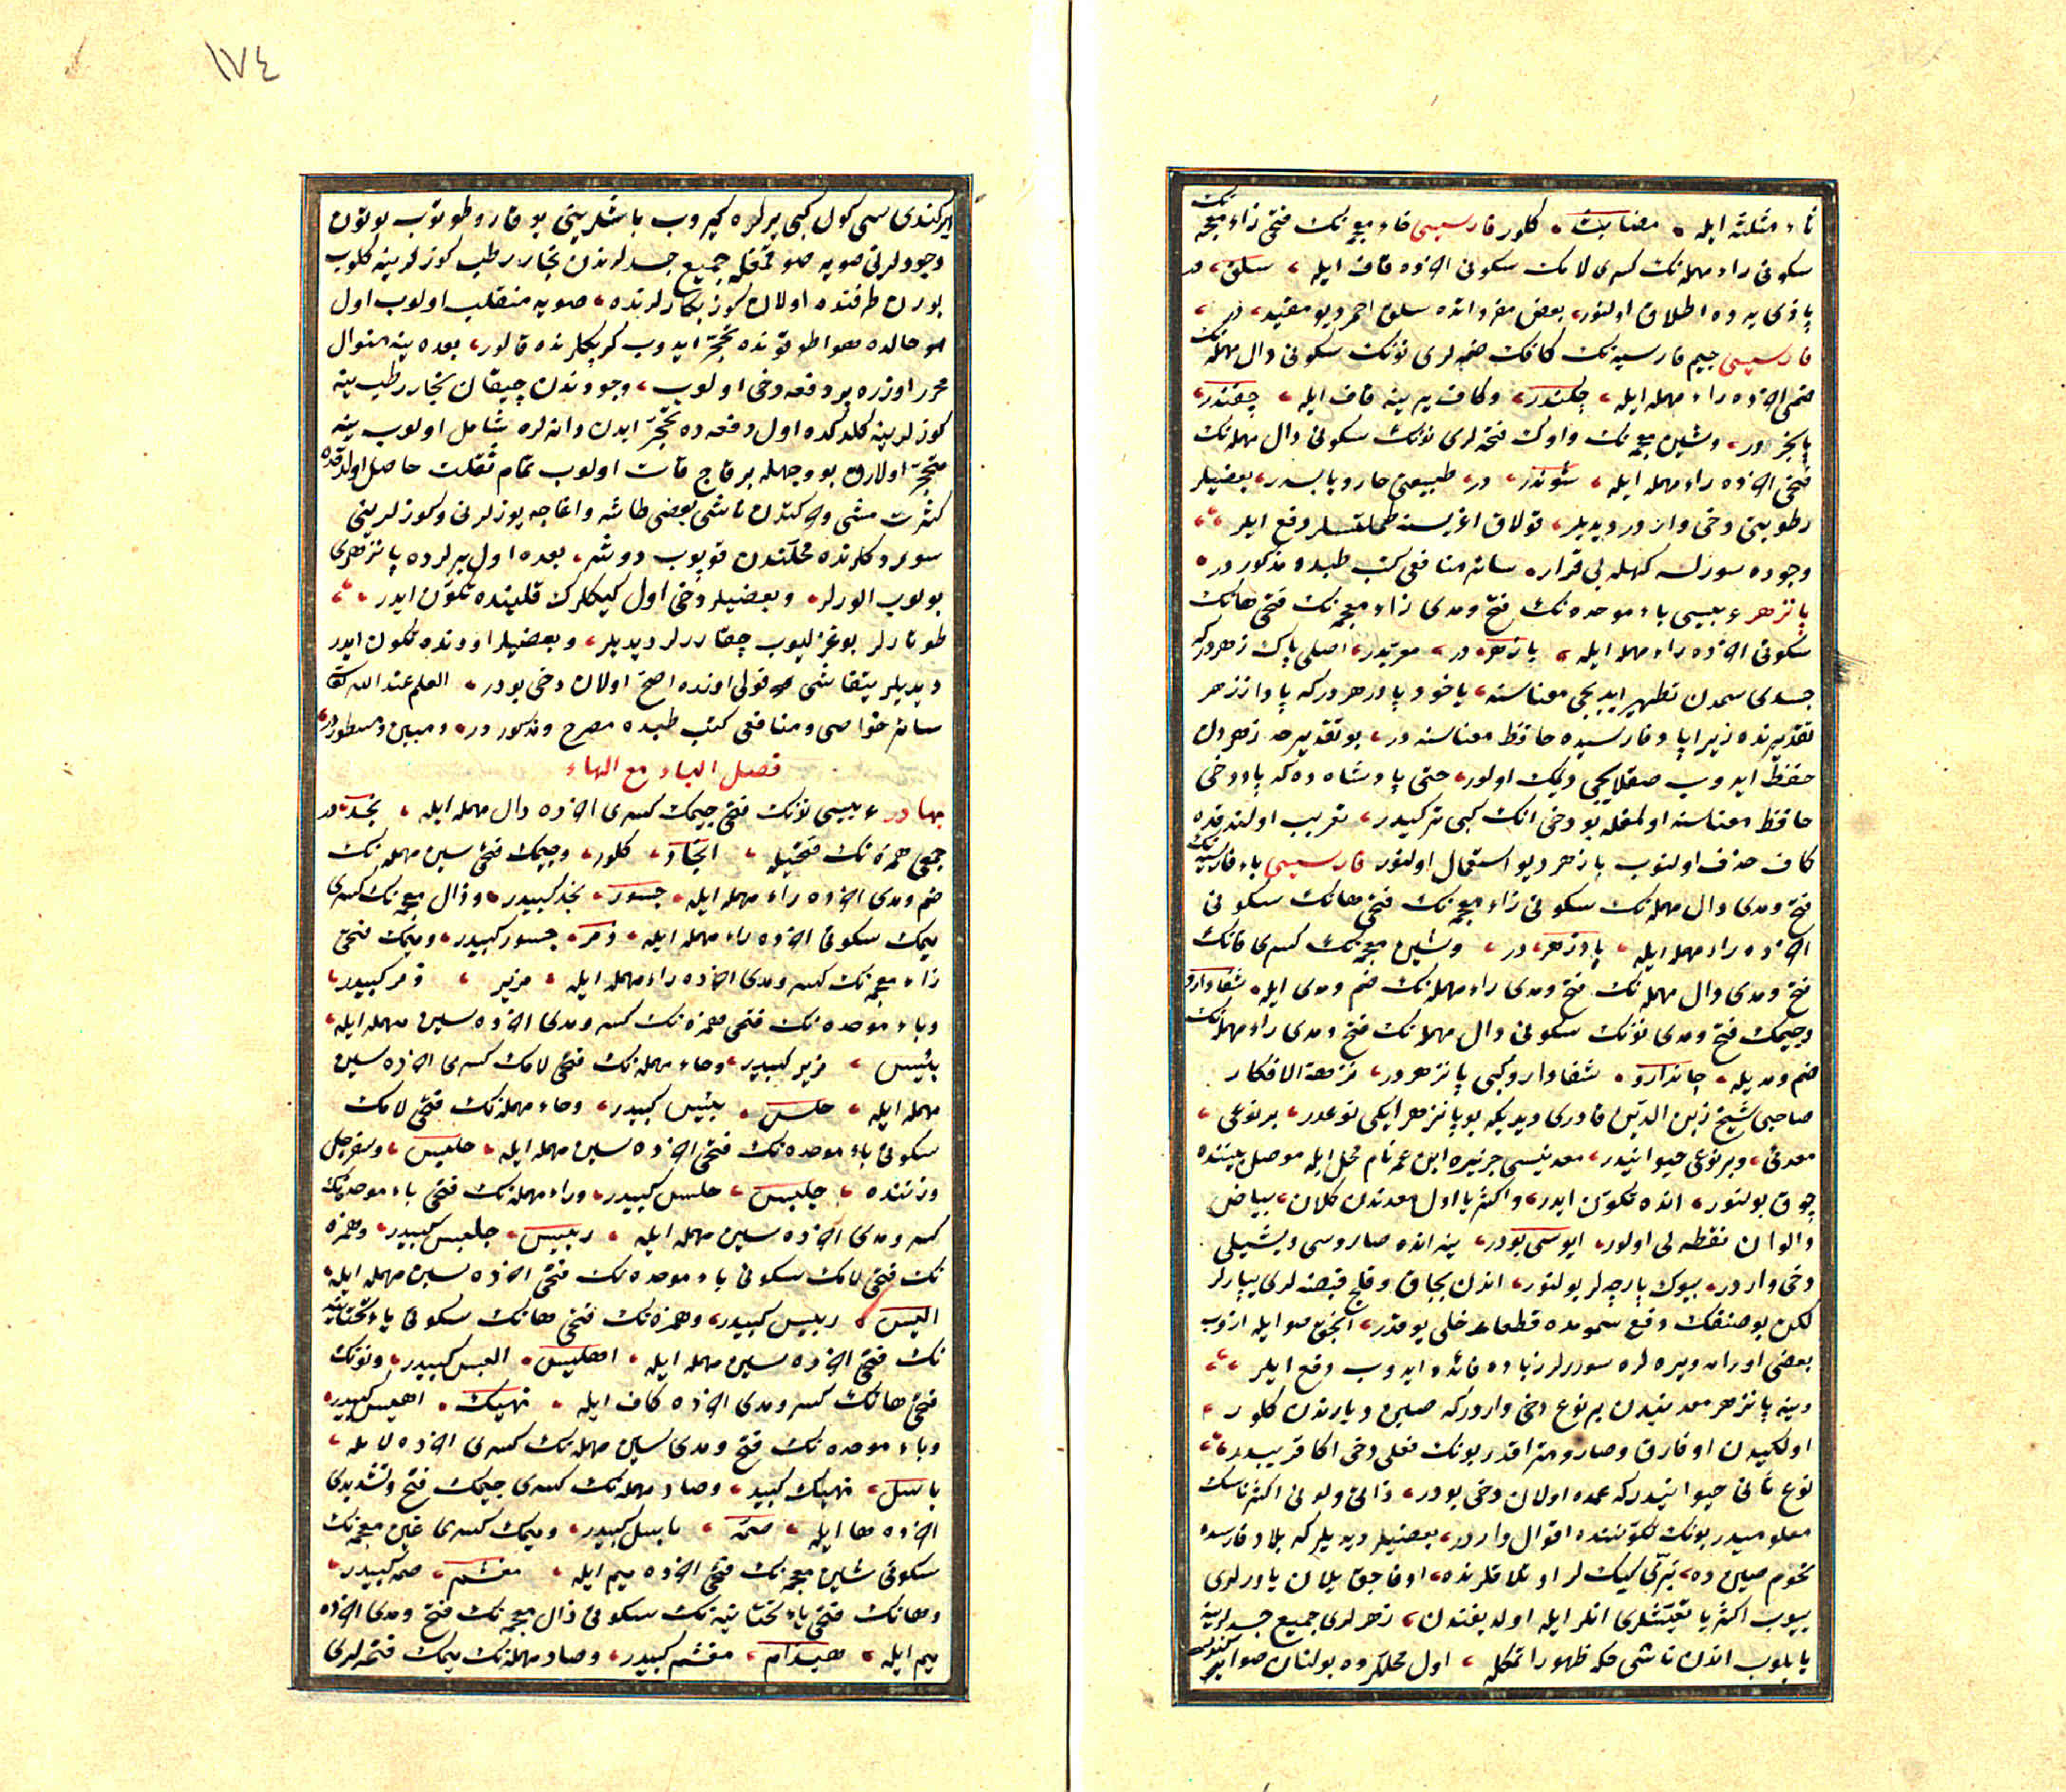 ثاء مثلثه ايله مضابث كلور فارسيسى خاء معجمه نك فتحى زاء معجمه نك
سكونى راء مهمله نك كسرى لامك سكونى اخرده قاف ايله سلق در
پازى يه ده اطلاق اولنور بعض مفرداتده سلق احمر ديو مقيد در
فارسيسى جيم فارسيه نك كافك ضمه لرى نونك سكونى دال مهمله نك
ضمى اخرده راء مهمله ايله چكندر وكاف يرينه قاف ايله چقندر
پانجر در وشين معجمه نك واوك فتحه لرى نونك سكونى دال مهمله نك
فتحى اخرده راء مهمله ايله شوندر در طبيعتى حار ويابسدر بعضيلر
رطوبتى دخى واردر ديديلر قولاق اغريسنه طملاتسلر دفع ايلر
وجوده سورلسه كهله يى قرار سائر منافعى كتب طبده مذكور در
پانزهر عربيسى باء موحده نك فتح ومدى زاء معجمه نك فتحى هانك
سكونى اخرده راء مهمله ايله بازهر در معربدر اصلى پاك زهر دركه
جسدى سمدن تطهير ايديجى معناسنه ياخود پادزهر دركه پاد از زهر
تقديرنده زيرا پاد فارسيده حافظ معناسنه در بو تقديرجه زهردن
حفظ ايدوب صقلايجى ديمك اولور حتى پادشاه ده كه پاد دخى
حافظ معناسنه اولمغله بو دخى انك كبى تركيدر تعريب اولندقده
كاف حذف اولنوب بازهر ديو استعمال اولنور فارسيسى باء فارسيه نك
فتح ومدى دال مهمله نك سكونى زاء معجمه نك فتحى هانك سكونى
اخرده راء مهمله ايله پادزهر در وشين معجمه نك كسرى فانك
فتح ومدى دال مهمله نك فتح ومدى راء مهمله نك ضم ومدى ايله شفادارو
وجيمك فتح ومدى نونك سكونى دال مهمله نك فتح ومدى راء مهمله نك
ضم ومديله جاندارو شفادارو كبى پانزهر در نزهة الافكار
صاحبى شيخ زين الدين قادرى ديديكه بو پانزهر ايكى نوعدر بر نوعى
معدنى وبر نوعى حيوانيدر معدنيسى جزيره ابن عمر نام محل ايله موصل بيننده
چوق بولنور انده تكون ايدر واكثريا اول معدندن كلان بياض
والوان نقطه لى اولور ايوسى بودر ينه انده صاروسى ويشيلى
دخى واردر بيوك پارچه لر بولنور اندن بچاق وقلج قبضه لرى يپارلر
لكن بو صنفك دفع سمومده قطعا دخلى يوقدر انجق صو ايله ازوب
بعضى اورام ويره لره سوررلر زياده فائده ايدوب دفع ايلر
وينه پانزهر معدنيدن بر نوع دخى واردركه صين ديارندن كلور
اولكيدن اوفارق وصارومتراقدر بونك فعلى دخى اكا قريبدر
نوع ثانى حيوانيدركه عمده اولان دخى بودر ذاتى ولونى اكثر ناسك
معلوميدر بونك تكوننده اقوال واردر بعضيلر ديديلركه بلاد فارسده
تخوم صين ده برى كيك لر اوتلاقلرنده اوفاجق ييلان ياورلرى
ييوب اكثريا تعيشلرى انلر ايله اولديغندن زهرلرى جميع جسدلرينه
ياييلوب اندن ناشى حكه ظهور اتمكله اول محللرده بولنان صولره
١٧٤
بركندى سى كول كبى يرلره كيروب باشلرينى يوقارو طوتوب بوتون
وجودلرنى صويه صوقمغله جميع جسدلرندن بخار رطب كوزلرينه كلوب
بورن طرفنده اولان كوز بكارلرنده صويه منقلب اولوب اول
حالده هوا طوقوندقده تحجر ايدوب كربكلرنده قالور بعده ينه منوال
محرر اوزره بر دفعه دخى اولوب وجودندن چيقان بخار رطب ينه
كوزلرينه كلدكده اول دفعه ده تحجر ايدن دانه لره شامل اولوب ينه
متحجر اولارق بو وجهله بر قاچ قات اولوب تمام ثقلت حاصل اولدقده
كثرت مشى وحركتدن ناشى بعضى طاشه واغاجه يوزلرنى وكوزلرينى
سوردكلرنده محلندن قوپوب دوشر بعده اول يرلرده پانزهرى
بولوب الورلر وبعضيلر دخى اول كيكلرك قلبنده تكون ايدر
طوتارلر بوغزليوب چقاررلر ديديلر وبعضيلر اودنده تكون ايدر
ديديلر يتقاشى قولى اوزره اصح اولان دخى بودر العلم عند الله تعالى
سائر خواصى ومنافعى كتب طبده مصرح ومذكور در ومبين ومسطوردر
فصل الباء مع الهاء
بهادر عربيسى نونك فتحى جيمك كسرى اخرده دال مهمله ايله نجد در
جمعى همزه نك فتحيله انجاد كلور وجيمك فتحى سين مهمله نك
ضم ومدى اخرده راء مهمله ايله جسور نجد كبيدر وذال معجمه نك كسرى
ميمك سكونى اخرده راء مهمله ايله ذمر جسور كبيدر وميمك فتحى
زاء معجمه نك كسر ومدى اخرده راء مهمله ايله مزير ذمر كبيدر
وباء موحده نك فتحى همزه نك كسر ومدى اخرده سين مهمله ايله
بئيس مزير كبيدر وحاء مهمله نك فتحى لامك كسرى اخرده سين
مهمله ايله حلس بئيس كبيدر وحاء مهمله نك فتحى لامك
سكونى باء موحده نك فتحى اخرده سين مهمله ايله حلبس وسفرجل
وزننده حلبس حلس كبيدر وراء مهمله نك فتحى باء موحده نك
كسر ومدى اخرده سين مهمله ايله ربيس حلبس كبيدر وهمزه
نك فتحى لامك سكونى ياء موحده نك فتحى اخرده سين مهمله ايله
اليس ربيس كبيدر وهمزه نك فتحى هانك سكونى ياء تحتانيه
نك فتحى اخرده سين مهمله ايله اهيس اليس كبيدر ونونك
فتحى هانك كسر ومدى اخرده كاف ايله نهيك اهيس كبيدر
وباء موحده نك فتح ومدى سين مهمله نك كسرى اخرده لام ايله
باسل نهيك كبيدر وصاد مهمله نك كسرى ميمك فتح وتشديدى
اخرده ها ايله صمه باسل كبيدر وميمك كسرى غين معجمه نك
سكونى شين معجمه نك فتحى اخرده ميم ايله مغشم صمه كبيدر
وهانك فتحى ياء تحتانيه نك سكونى ذال معجمه نك فتح ومدى اخرده
ميم ايله هيذام مغشم كبيدر وصاد مهمله نك ميمك فتحه لرى